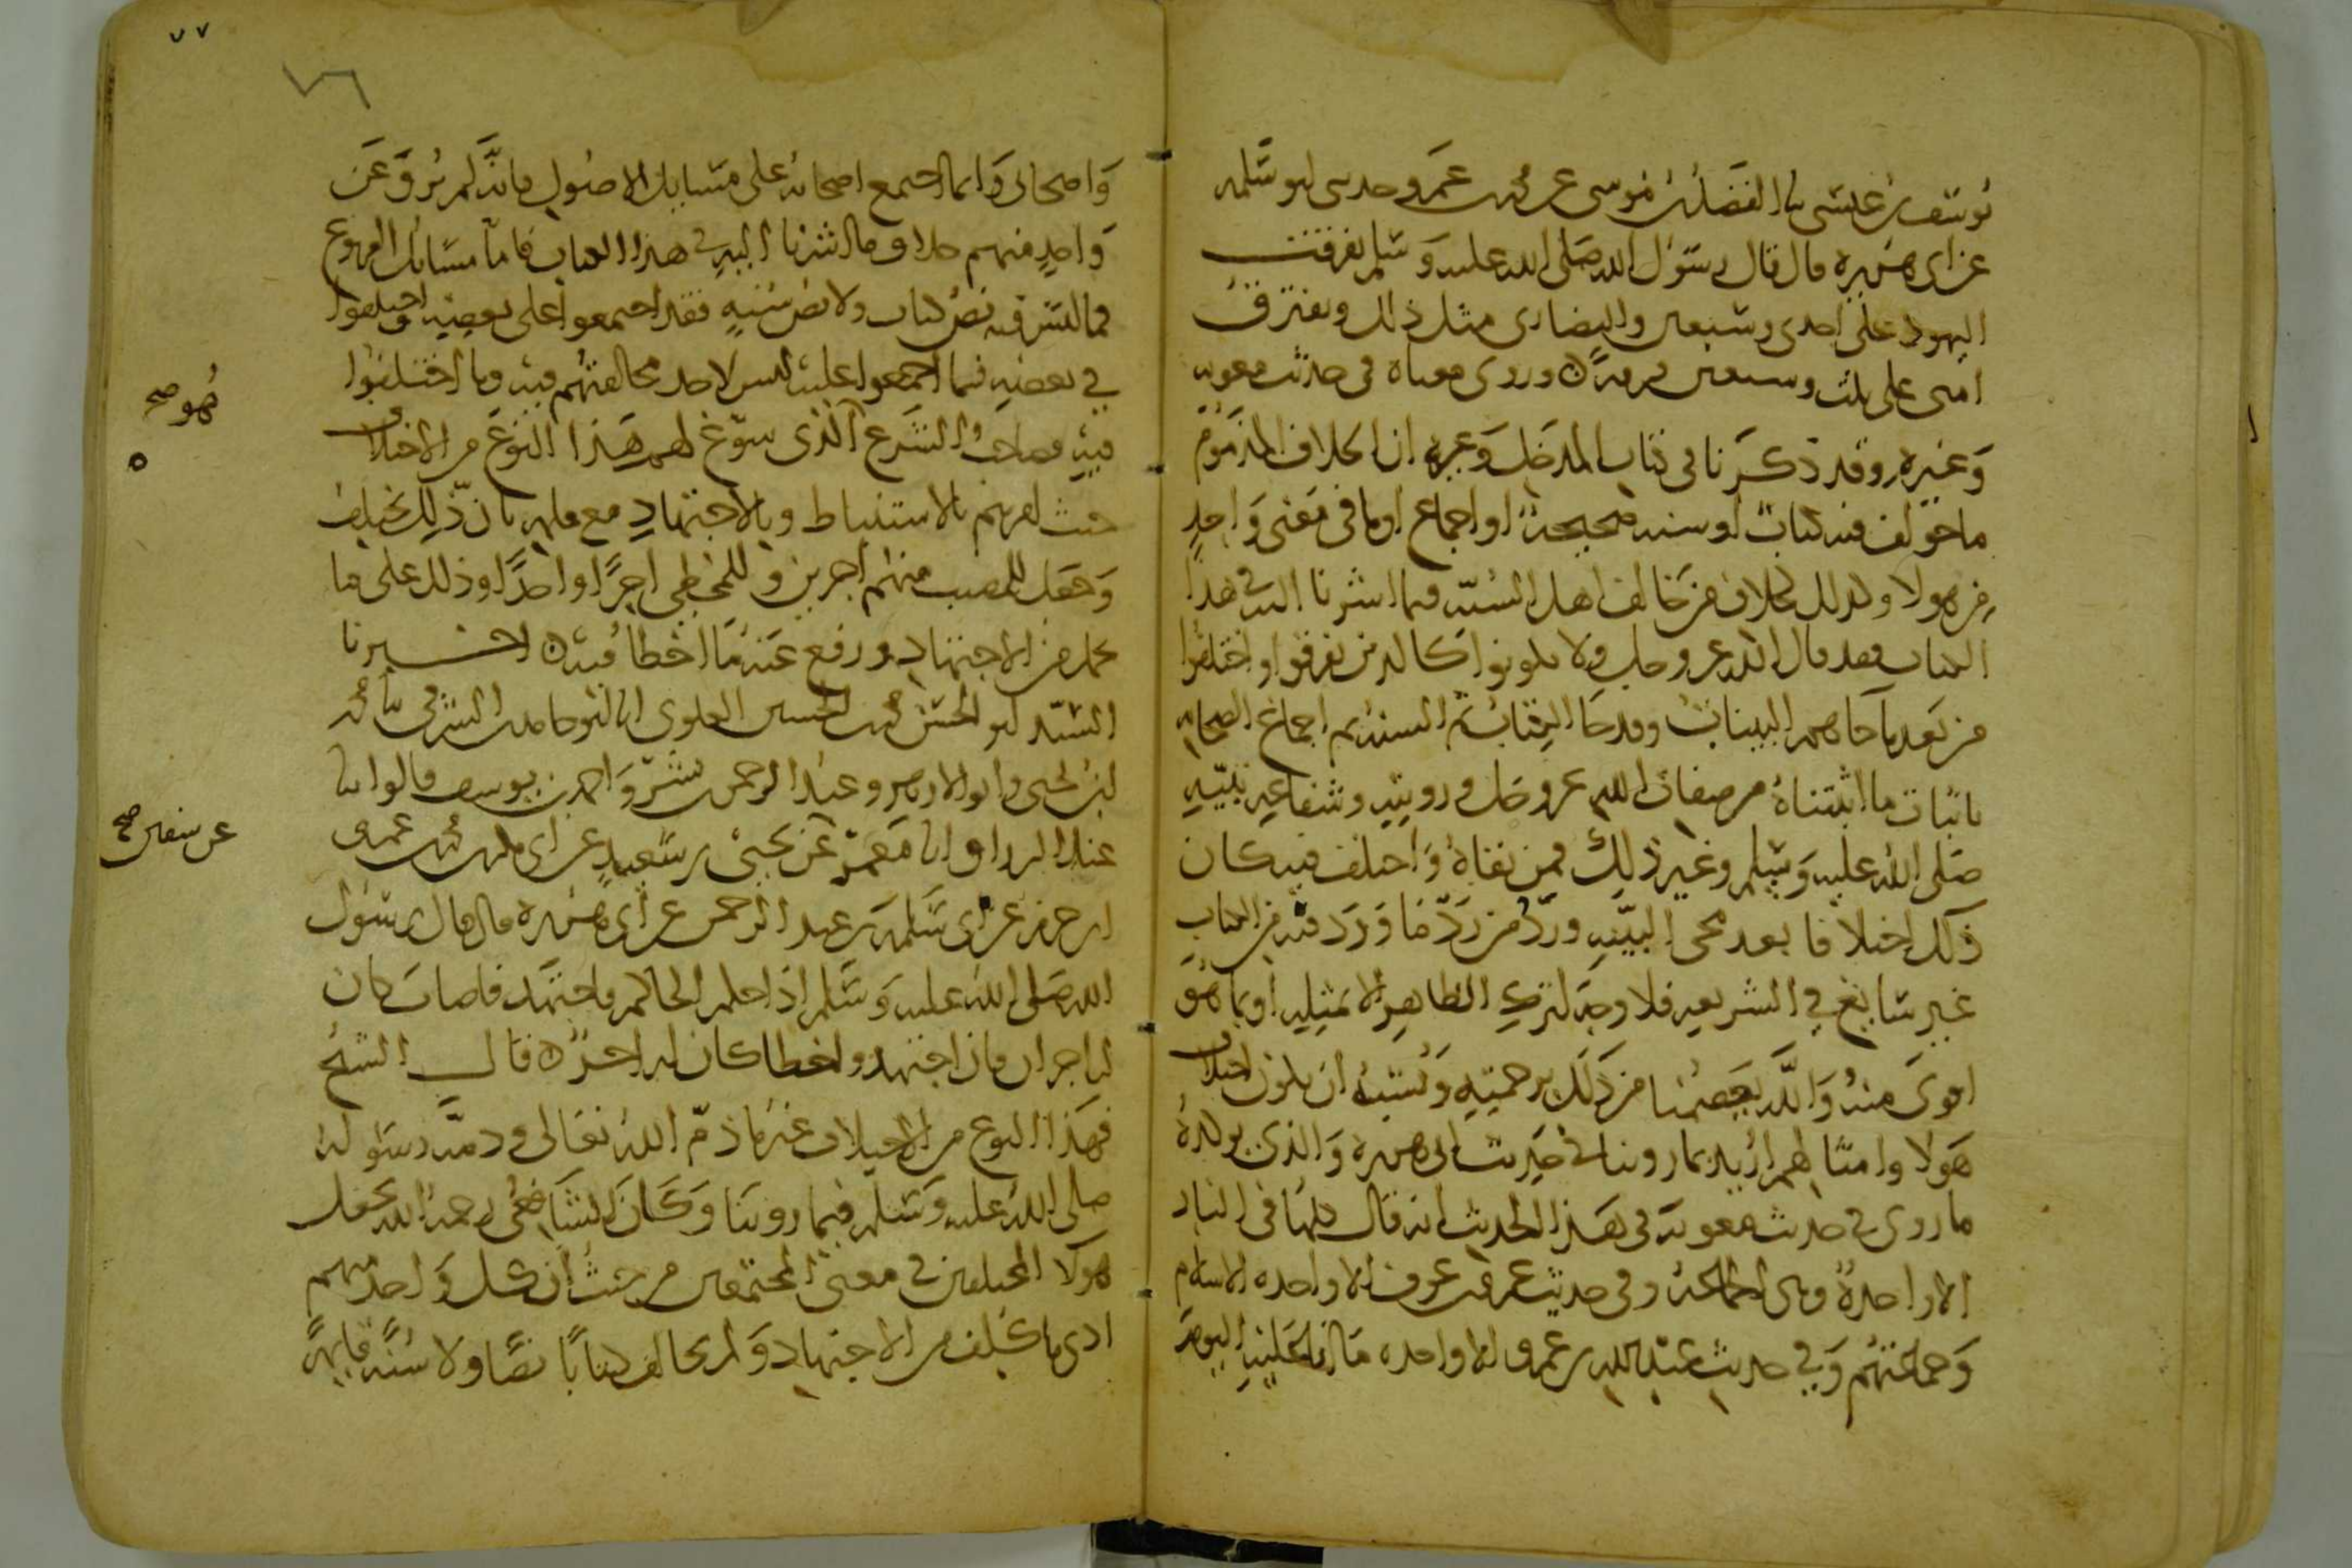 يوسف بن عيسى نا الفضل بن موسى عن محمد بن عمرو حدثني ابو سلمة
عن ابي هريرة قال قال رسول الله صلى الله عليه وسلم تفرقت
اليهود على احدى وسبعين والنصارى مثل ذلك وتفترق
امتي على ثلث وسبعين فرقة وروي معناه في حديث معوية
وغيره وقد ذكرنا في كتاب المدخل وغيره ان الخلاف المذموم
ما خولف فيه كتاب او سنة صحيحة او اجماع او ما في معنى واحد
من هولا وذلك كخلاف من خالف اهل السنة فيما اشرنا اليه في هذا
الكتاب فقد قال الله عز وجل ولا تكونوا كالذين تفرقوا واختلفوا
من بعد ما جاهم البينات وقد جا الكتاب ثم السنة ثم اجماع الصحابة
باثبات ما اثبتناه من صفات الله عز وجل ورويته وشفاعة نبيه
صلى الله عليه وسلم وغير ذلك فمن نفاه واختلف فيه كان
ذلك اختلافا بعد مجي البينة ورد من رد ما ورد فيه من الكتاب
غير سايغ في الشريعة فلا وجه لترك الظاهر الا بمثله او بما هو
اقوى منه والله يعصمنا من ذلك برحمته ويشبه ان يكون اختلاف
هولا وامثالهم اريد بما روينا في حديث ابي هريرة والذي يوكده
ما روي في حديث معوية في هذا الحديث انه قال كلها في النار
الا واحدة وهي الجماعة وفي حديث عمرو بن عوف الا واحدة الاسلام
وجماعتهم وفي حديث عبد الله بن عمرو الا واحدة ما انا عليه اليوم
٧٧
٧٦
واصحابي وانما اجتمع اصحابه على مسايل الاصول فانه لم يرو عن
واحد منهم خلاف ما اشرنا اليه في هذا الكتاب فاما مسايل الفروع
فما ليس فيه نص كتاب ولا نص سنة فقد اجمعوا على بعضه واختلفوا
في بعضه فما اجمعوا عليه ليس لاحد مخالفتهم فيه وما اختلفوا
فيه فصاحب الشرع الذي سوغ لهم هذا النوع من الاختلاف
حيث امرهم بالاستنباط وبالاجتهاد مع علمه بان ذلك يختلف
وجعل للمصيب منهم اجرين وللمخطي اجرا واحدا وذلك على ما
يحمل من الاجتهاد ورفع عنه ما اخطا فيه اخبرنا
السيد ابو الحسن محمد بن الحسين العلوي انا ابو حامد بن الشرقي نا محمد
بن يحيى وابو الازهر وعبد الرحمن بن بشر واحمد بن يوسف قالوا نا
عبد الرزاق انا معمر عن يحيى بن سعيد عن ابي بكر بن محمد بن عمرو
بن حزم عن ابي سلمة بن عبد الرحمن عن ابي هريرة قال قال رسول
الله صلى الله عليه وسلم اذا حكم الحاكم فاجتهد فاصاب كان
له اجران فان اجتهد واخطا كان له اجر قال الشيخ
فهذا النوع من الاختلاف غير ما ذم الله تعالى وذمه رسوله
صلى الله عليه وسلم فيما روينا وكان الشافعي رحمه الله يجعل
هولا المختلفين في معنى المجتمعين من حيث ان كل واحد منهم
ادى ما كلف من الاجتهاد ولم يخالف كتابا نصا ولا سنة قايمة
هو صح
عن سفين صح